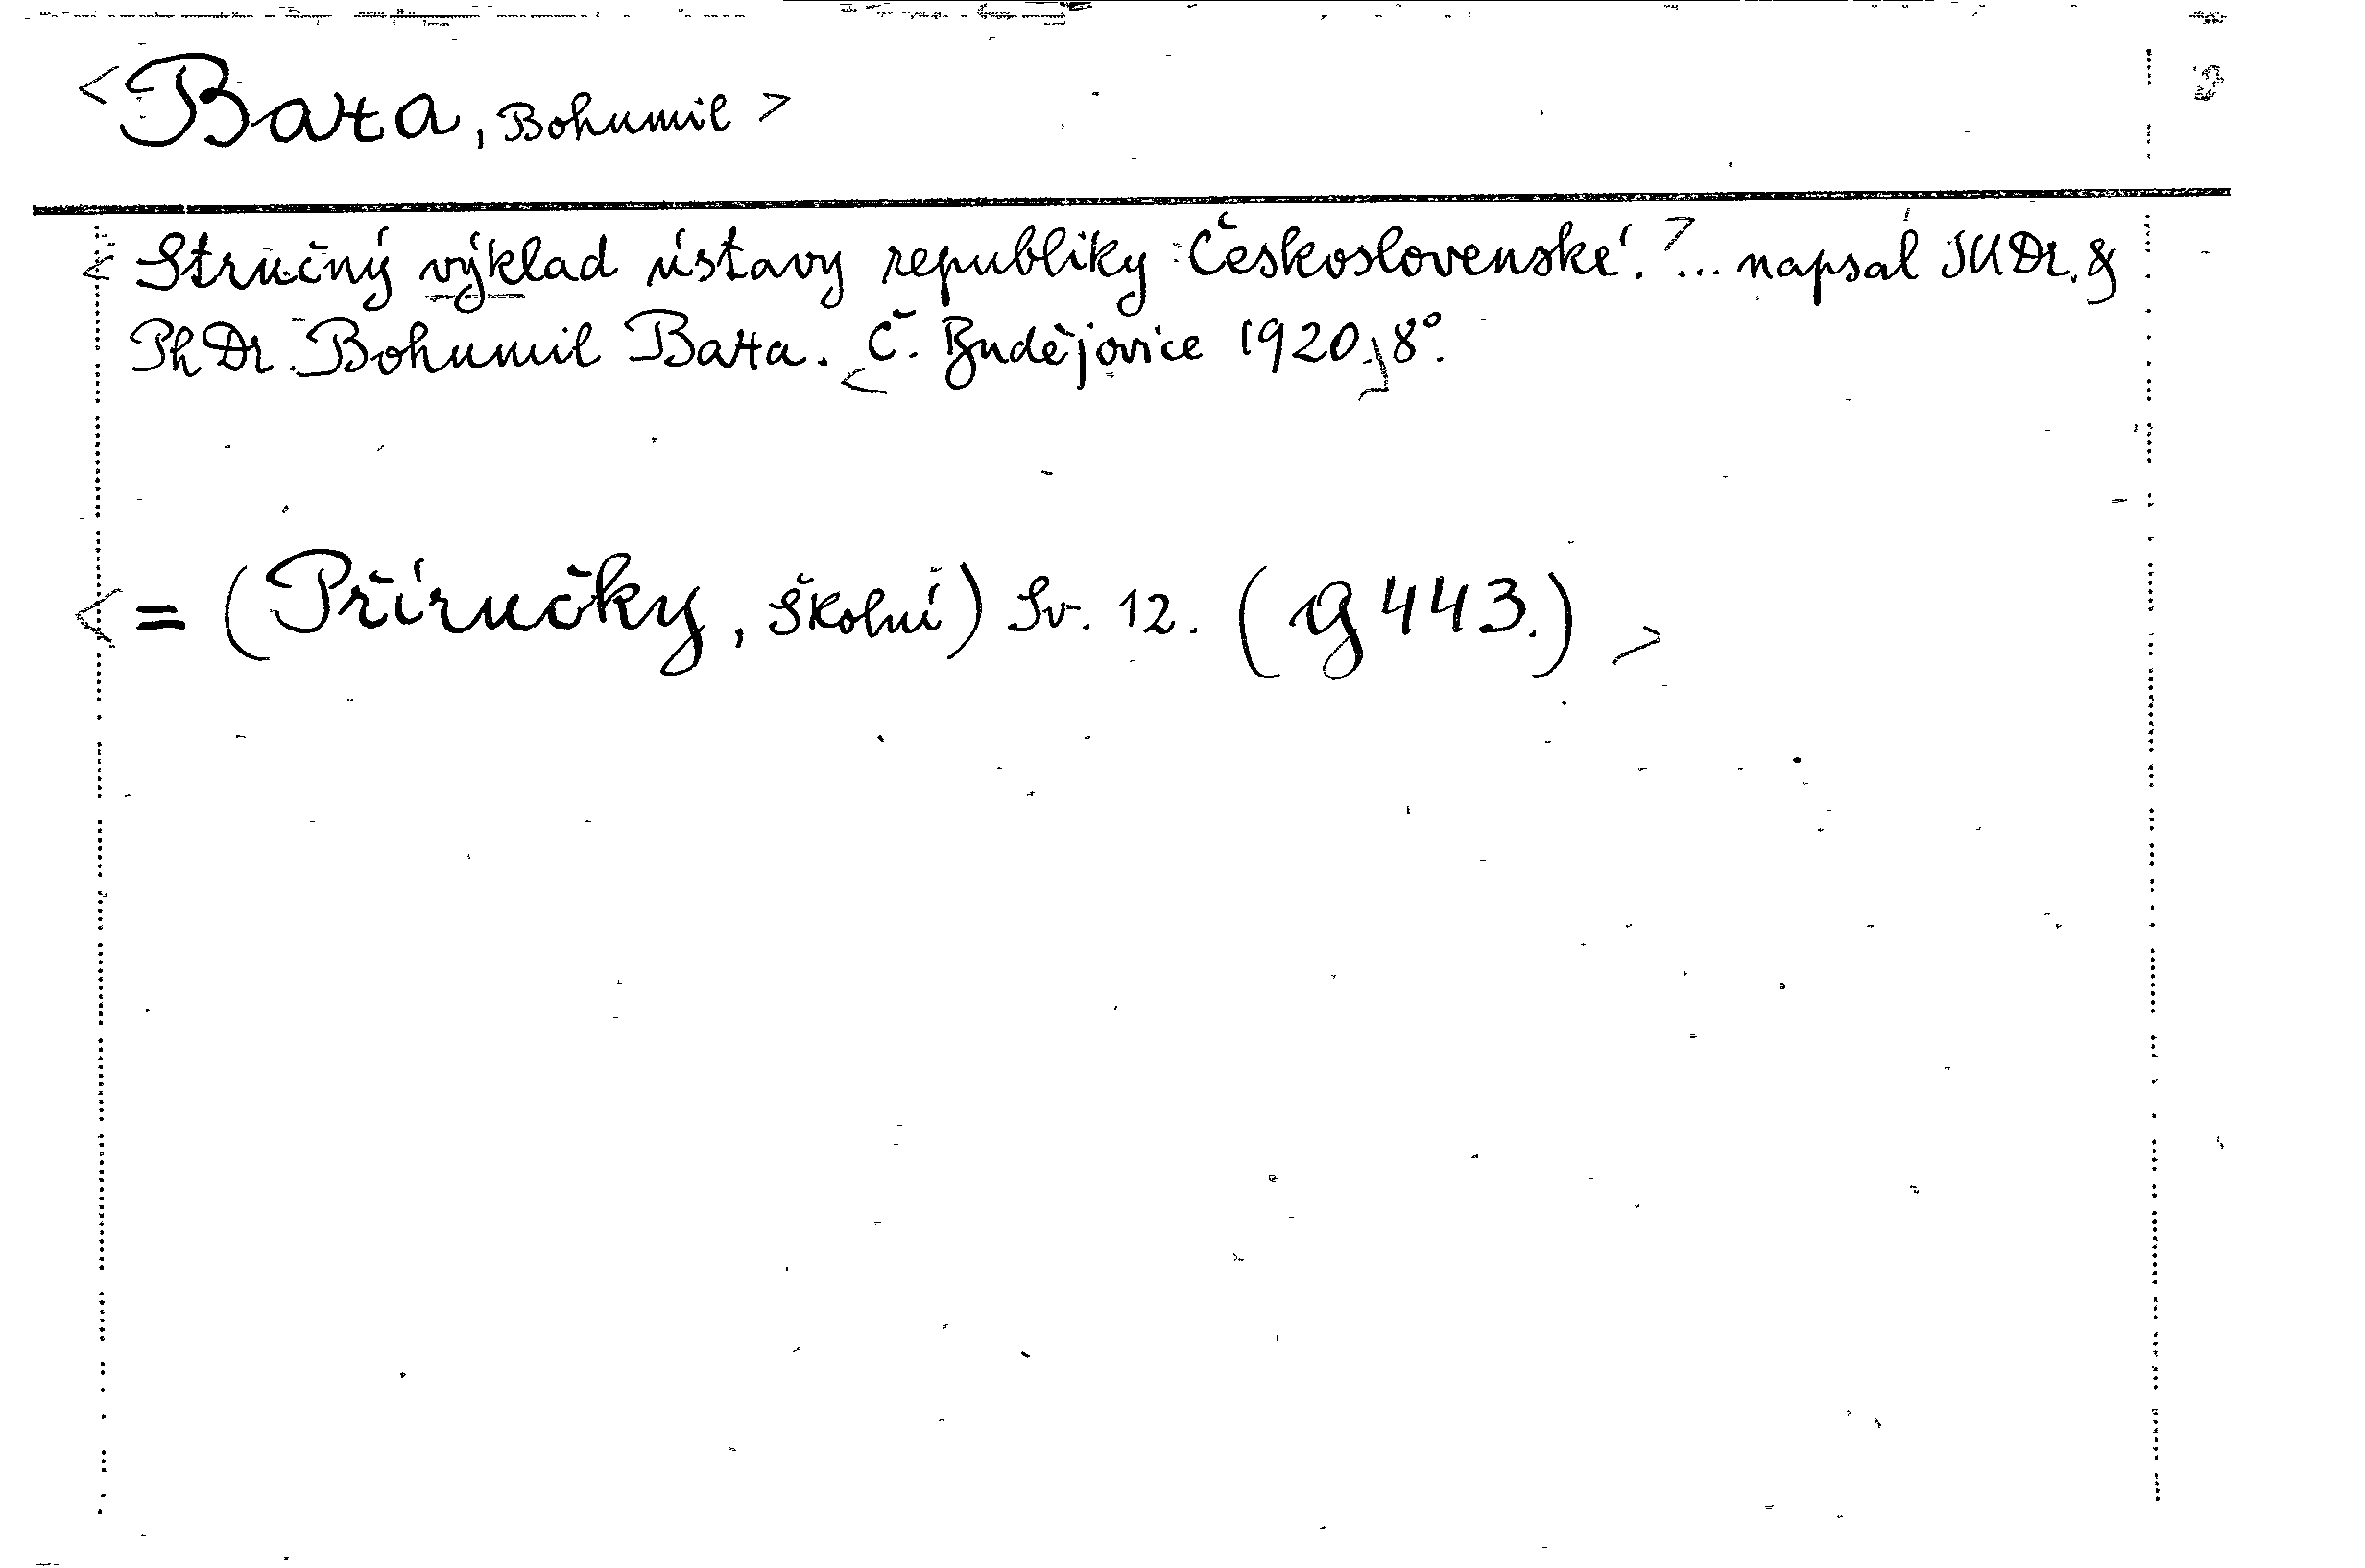 <Baxa, Bohumil>
<Stručný výklad ústavy republiky Československé.> ... napsal JUDr. &
PhDr. Bohumil Baxa. <Č. Budějovice 1920.> 8°.
<= (Příručky, školní) Sv. 12. (g 443.)>